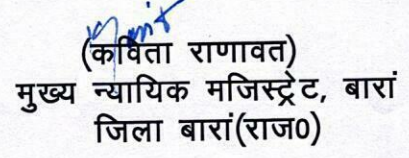 (कविता राणावत)
मुख्य न्यायिक मजिस्ट्रेट, बारां
जिला बारां(राज0)